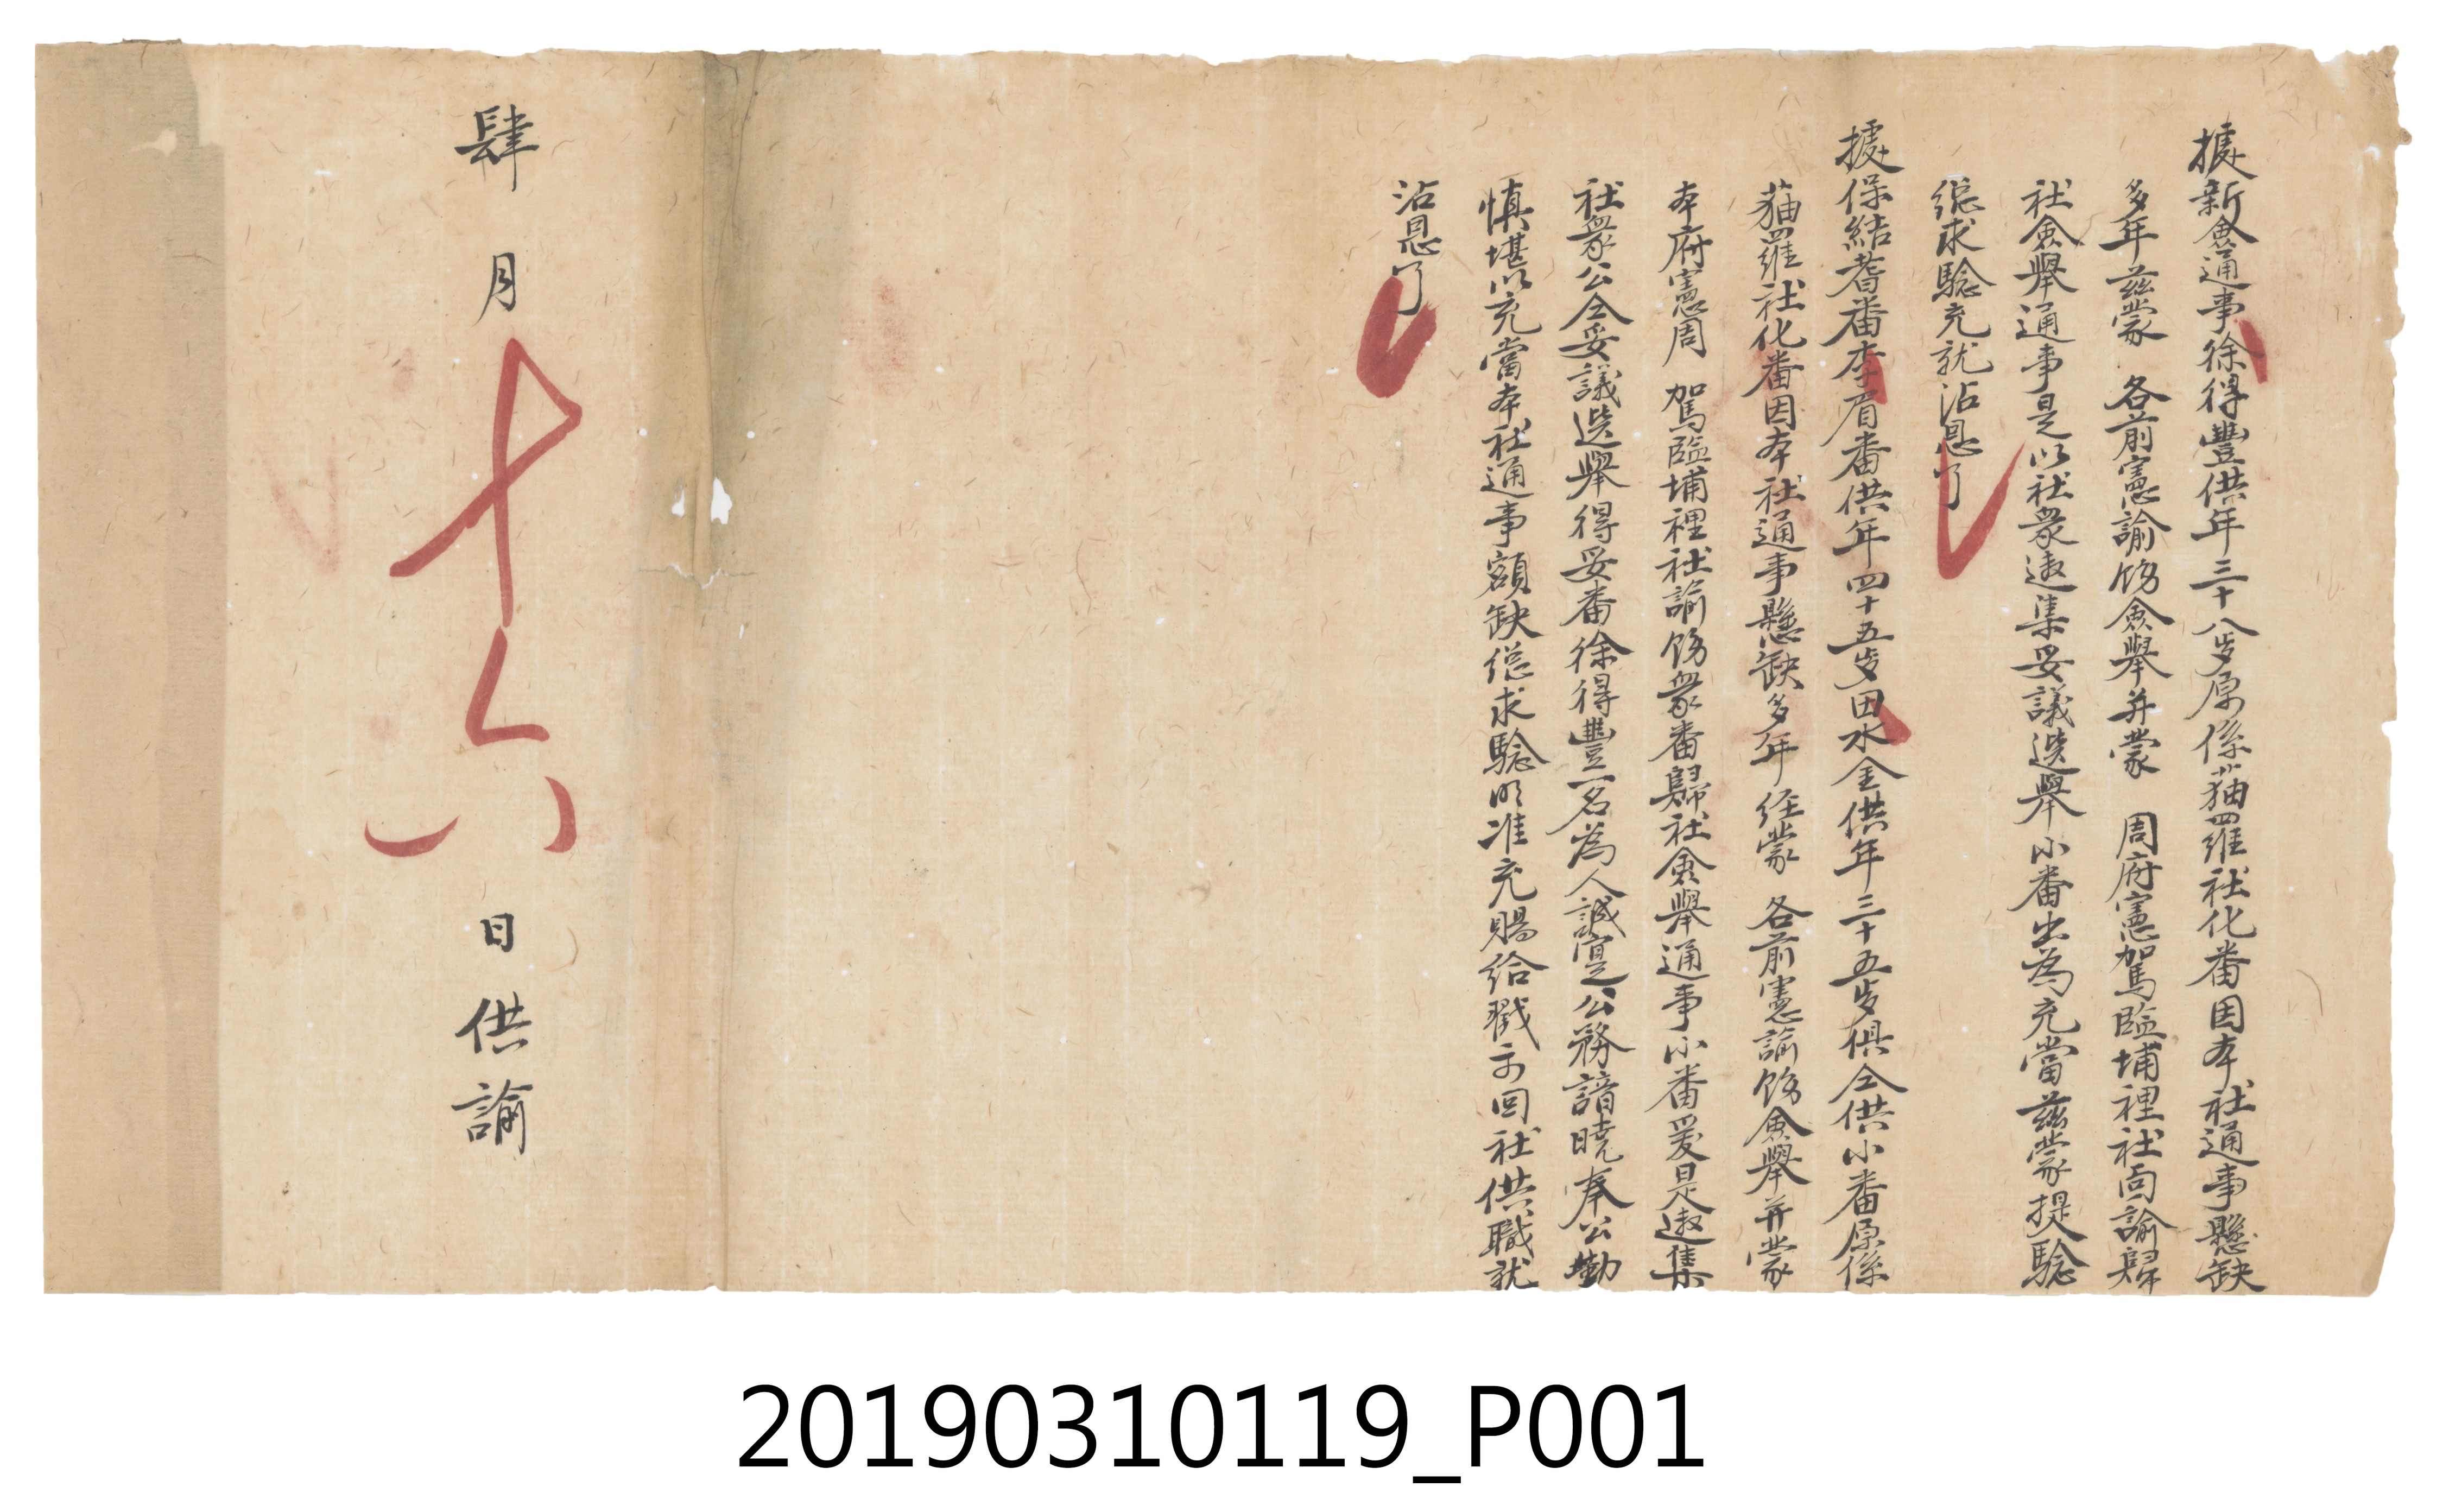 據新僉通事徐得豐供年三十八歲原係猫羅社化番因本社通事懸缺
多年茲蒙　各前憲諭飭僉舉并蒙　周府憲駕臨埔裡社面諭歸
社僉舉通事是以社眾邀集妥議选舉小番出為充當茲蒙提驗
總求驗充就沾恩了
據保結耆番李眉番供年四十五歲田水全供年三十五歲俱仝供小番原係
猫羅社化番因本社通事懸缺多年经蒙　各前憲諭飭僉舉并蒙
本府憲周　駕臨埔裡社諭飭眾番歸社僉舉通事小番爰是邀集
社眾公仝妥議选舉得妥番徐得豐一名為人誠寔公務諳曉奉公勤
慎堪以充當本社通事額缺総求驗明准充賜給戳示回社供職就
沾恩了
肆月十六日供諭
20190310119_P001